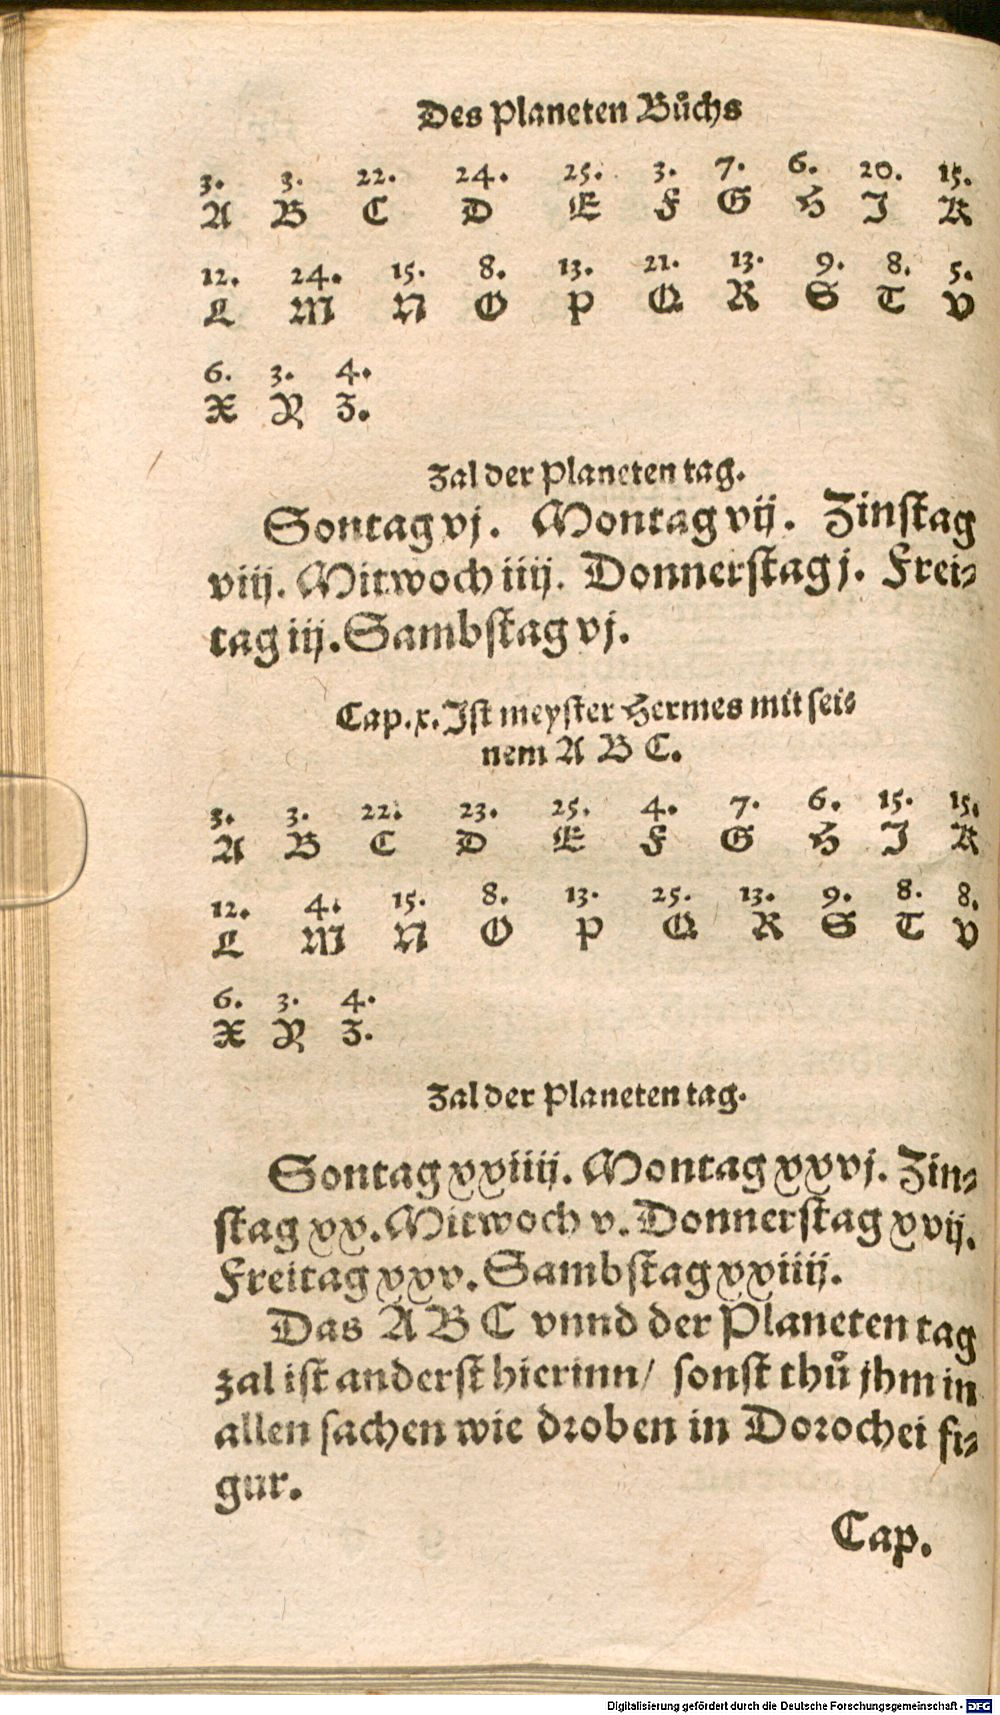 Des Planeten Bůchs
3. 3. 22. 24. 25. 3. 7. 6. 20. 15.
A B C D E F G H I K
12. 24. 15. 8. 13. 21. 13. 9. 8. 5.
L M N O P Q R S T V
6. 3. 4.
X Y Z.
Zal der Planeten tag.
Sontag vj. Montag vij. Zinstag
viij. Mitwoch iiij. Donnerstag j. Frei-
tag iij. Sambstag vj.
Cap. x. Ist meyster Hermes mit sei-
nem A B C.
3. 3. 22. 23. 25. 4. 7. 6. 15. 15.
A B C D E F G H I K
12. 4. 15. 8. 13. 25. 13. 9. 8. 8.
L M N O P Q R S T V
6. 3. 4.
X Y Z.
Zal der Planeten tag.
Sontag xxiiij. Montag xxvj. Zin-
stag xx. Mitwoch v. Donnerstag xvij.
Freitag xxv. Sambstag xxiiij.
Das A B C vnnd der Planeten tag
zal ist anderst hierinn/ sonst thů jhm in
allen sachen wie droben in Dorochei fi-
gur.
Cap.
Digitalisierung gefördert durch die Deutsche Forschungsgemeinschaft - DFG